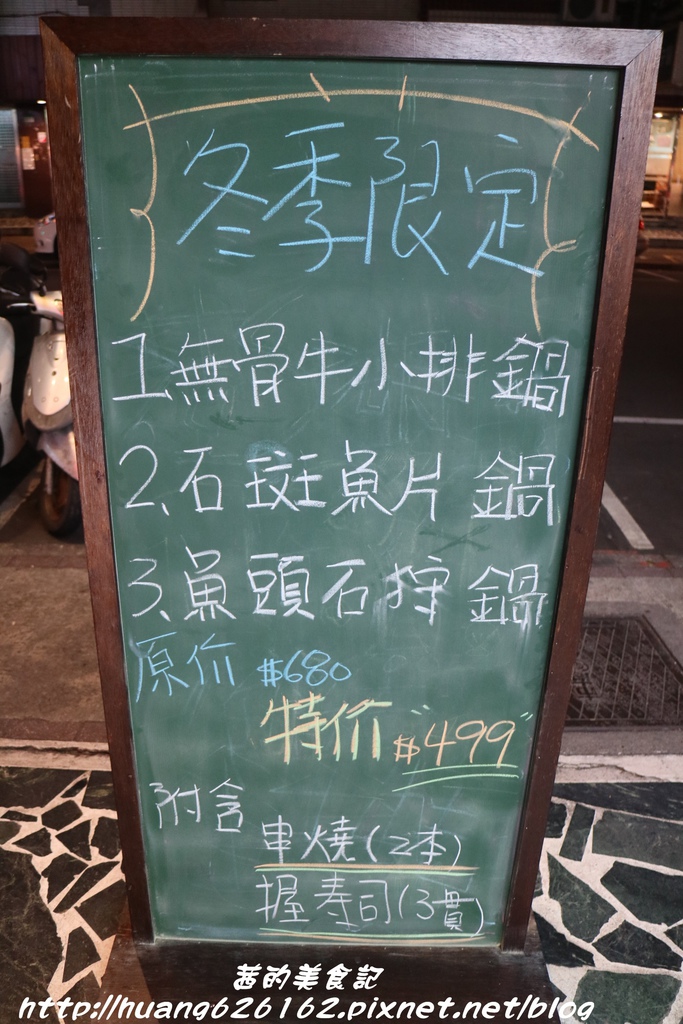 冬季限定
1.無骨牛小排鍋
2.石斑魚片鍋
3.魚頭石狩鍋
原价 $680
特价 "$499"
附含
串燒(2本)
握寿司(3貫)
茜的美食記
http://huang626162.pixnet.net/blog